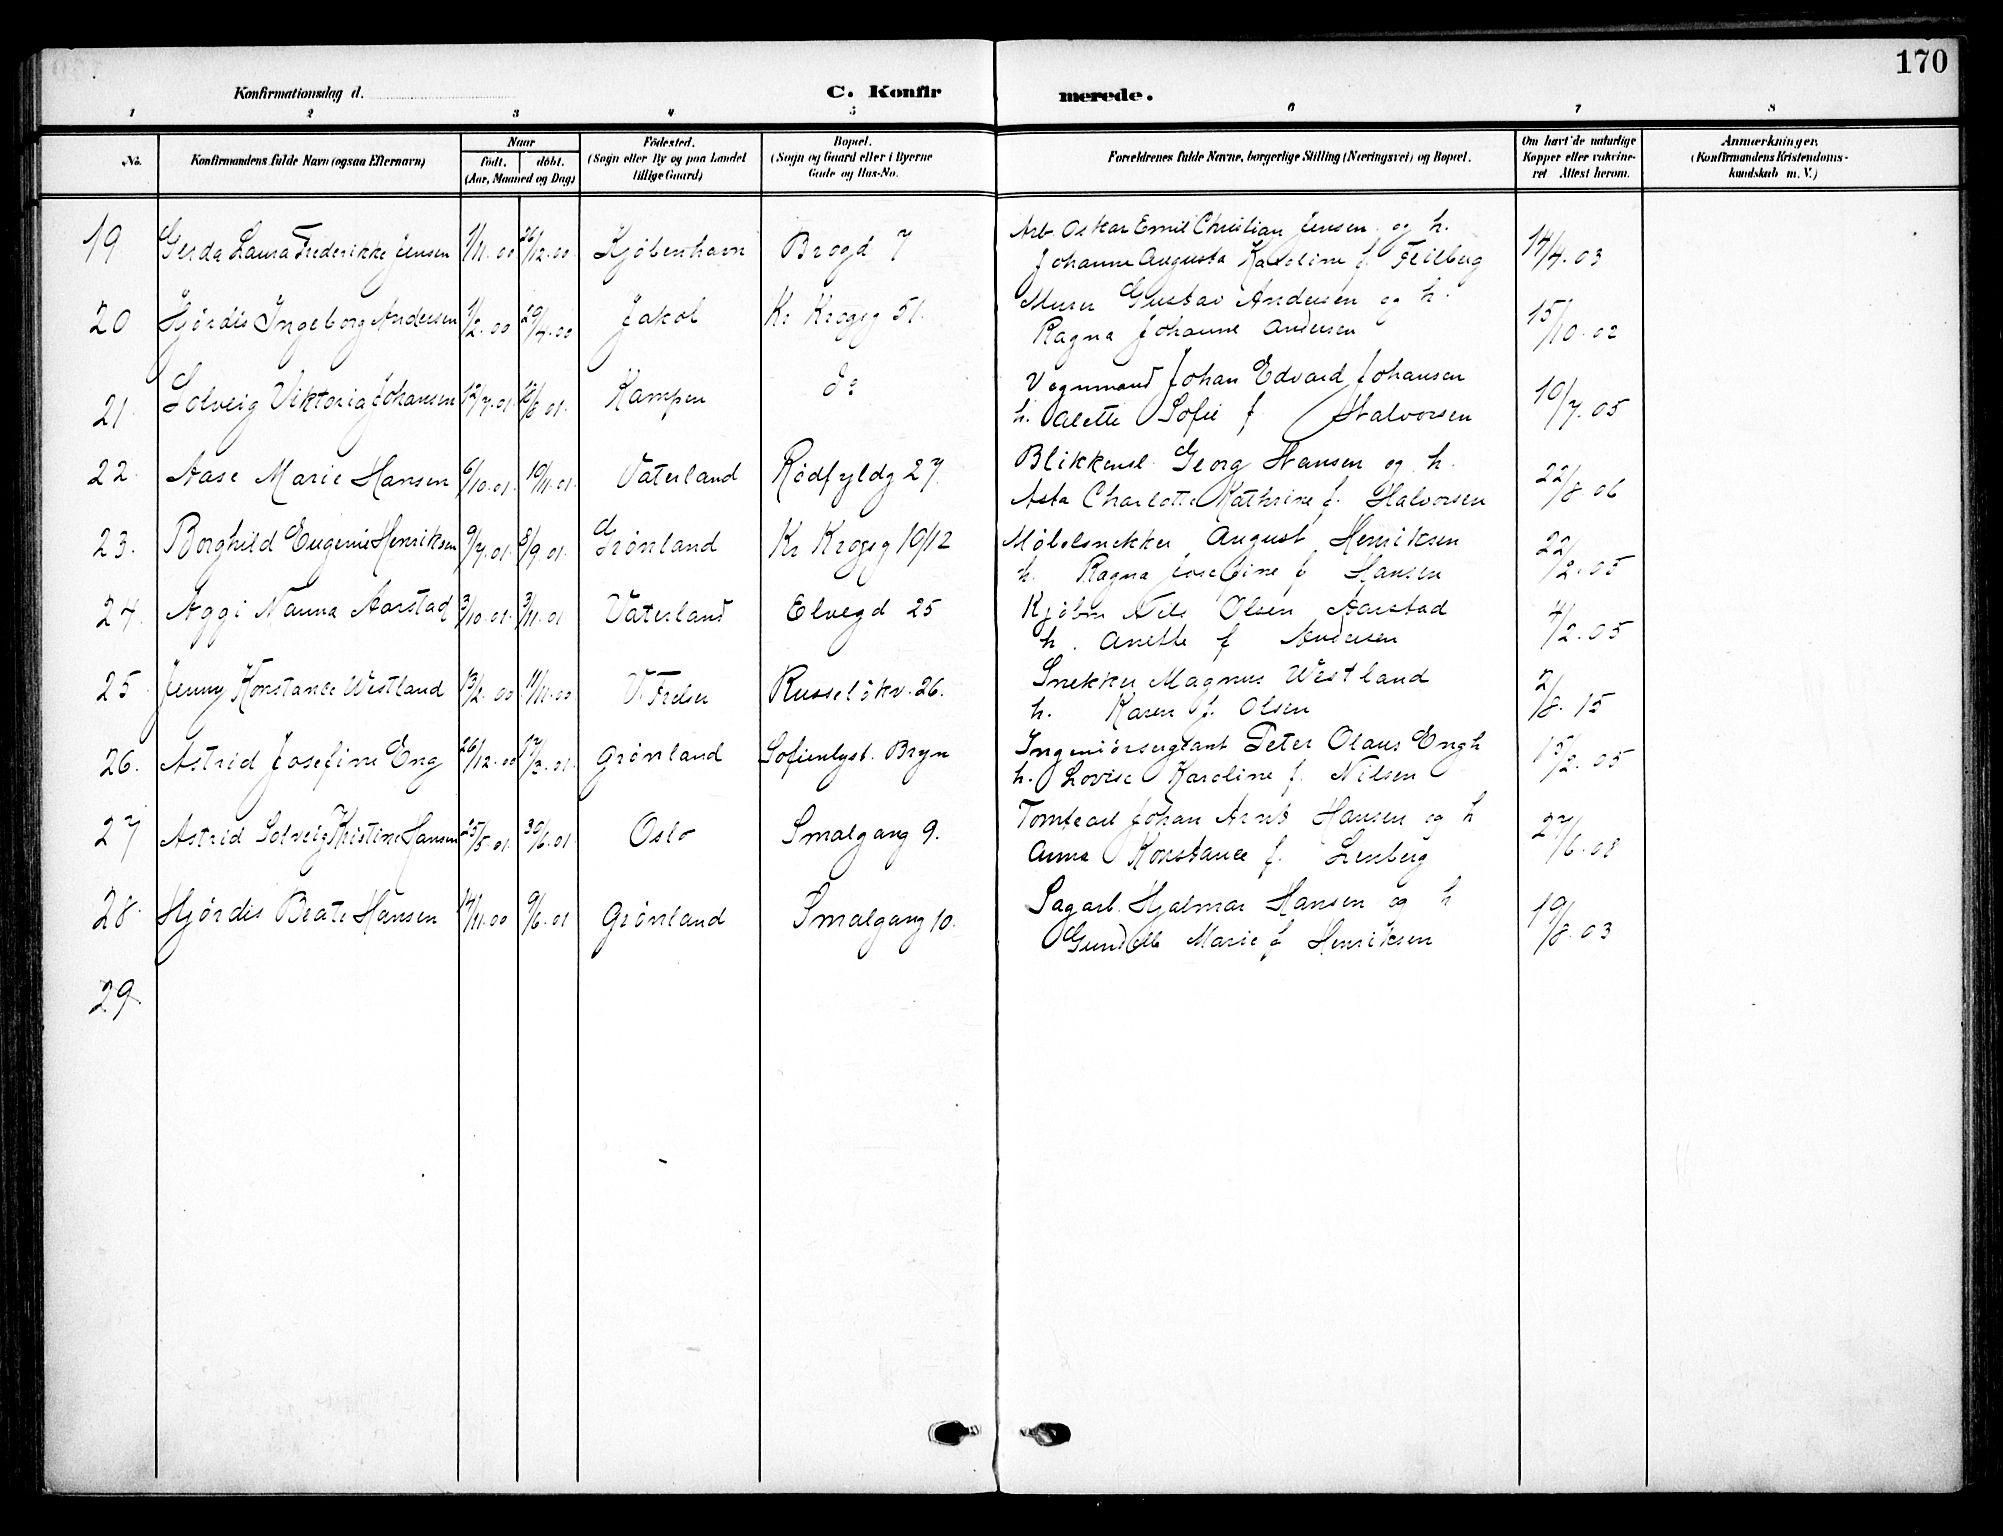 170
Konfirmationsdag d.
C. Konfirmerede.
1 2 3 4 5 6 7 8
No.
Konfirmandens fulde Navn (ogsaa Efternavn)
Naar
født. døbt.
(Aar, Maaned og Dag)
Fødested.
(Sogn eller By og paa Landet
tillige Gaard)
Bopæl.
(Sogn og Gaard eller i Byerne
Gade og Hus-No.
Forældrenes fulde Navne, borgerlige Stilling (Næringsvei) og Bopæl.
Om havt de naturlige
Kopper eller vakcine-
ret Attest herom.
Anmærkninger.
(Konfirmandens Kristendoms-
kundskab m. V.)
19 Gerda Laura Frederikke Jensen 1/11.00 26/12.00 Kjøbenhavn Brogd 7 Arb. Oskar Emil Christian Jensen og h. 14/4.03
Johanne Augusta Karoline f. Feilberg
20 Hjørdis Ingeborg Andersen 1/2.00 29/4.00 Jakob Kr Krogsg 51. Murer Gustav Andersen og h. 15/10.02
Ragna Johanne Andersen
21 Solveig Viktoria Johansen 12/7.01. Kampen do Vognmand Johan Edvard Johansen 10/7.05
h. Alette Sofie f Halvorsen
22. Aase Marie Hansen 6/10.01. 10/11.01. Vaterland Rødfyldg 27. Blikkensl. Georg Hansen og h. 22/8 06
Asta Charlotte Kathrine f. Halvorsen
23. Borghild Eugenie Henriksen 9/7.01. 8/9.01. Grønland Kr Krogsg 10/12 Møbelsnekker August Henriksen 22/2.05
h. Ragna Josefine f Hansen
24. Aggi Nanna Aarstad 3/10.01. 3/11.01 Vaterland Elvegd 25 Kjøbm Nils Olsen Aarstad 4/2.05
h. Anette f Andersen
25. Jenny Konstance Westland 13/2.00 11/11.00 V. Frelser Russeløkv. 26. Snekker Magnus Westland 2/8.15
h. Karen f. Olsen
26. Astrid Josefine Eng 26/12.00 17/3.01. Grønland Sofienlyst. Bryn Ingeniørsergeant Peter Olaus Engh 15/2.05
h. Lovise Karoline f. Nilsen
27 Astrid Solveig Kristine Hansen 25/5.01. 30/6.01. Oslo Smalgang 9. Tomtearb Johan Hansen og h 27/6.08
Anna Konstance f. Lenberg
28. Hjørdis Beate Hansen 14/11.00 9/6.01 Grønland Smalgang 10. Sagarb. Hjalmar Hansen og h 19/8.03
Marie f Henriksen
29.